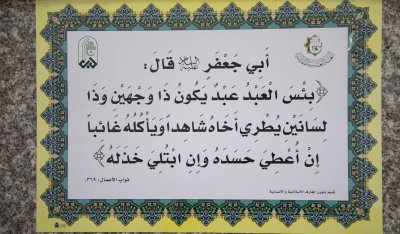 أَبي جَعْفَرٍ عليه السلام قَالَ:
﴿بِئْسَ الْعَبْدُ عَبْدٌ يَكُونُ ذَا وَجْهَيْنِ وَذَا
لِسَانَيْنِ يُطْرِي أَخَاهُ شَاهِداً وَيَأْكُلُهُ غَائِباً
إِنْ أُعْطِيَ حَسَدَهُ وَإِنِ ابْتُلِيَ خَذَلَهُ﴾
ثواب الأعمال، ٣٦٩.
قسم شؤون المعارف الاسلامية والانسانية